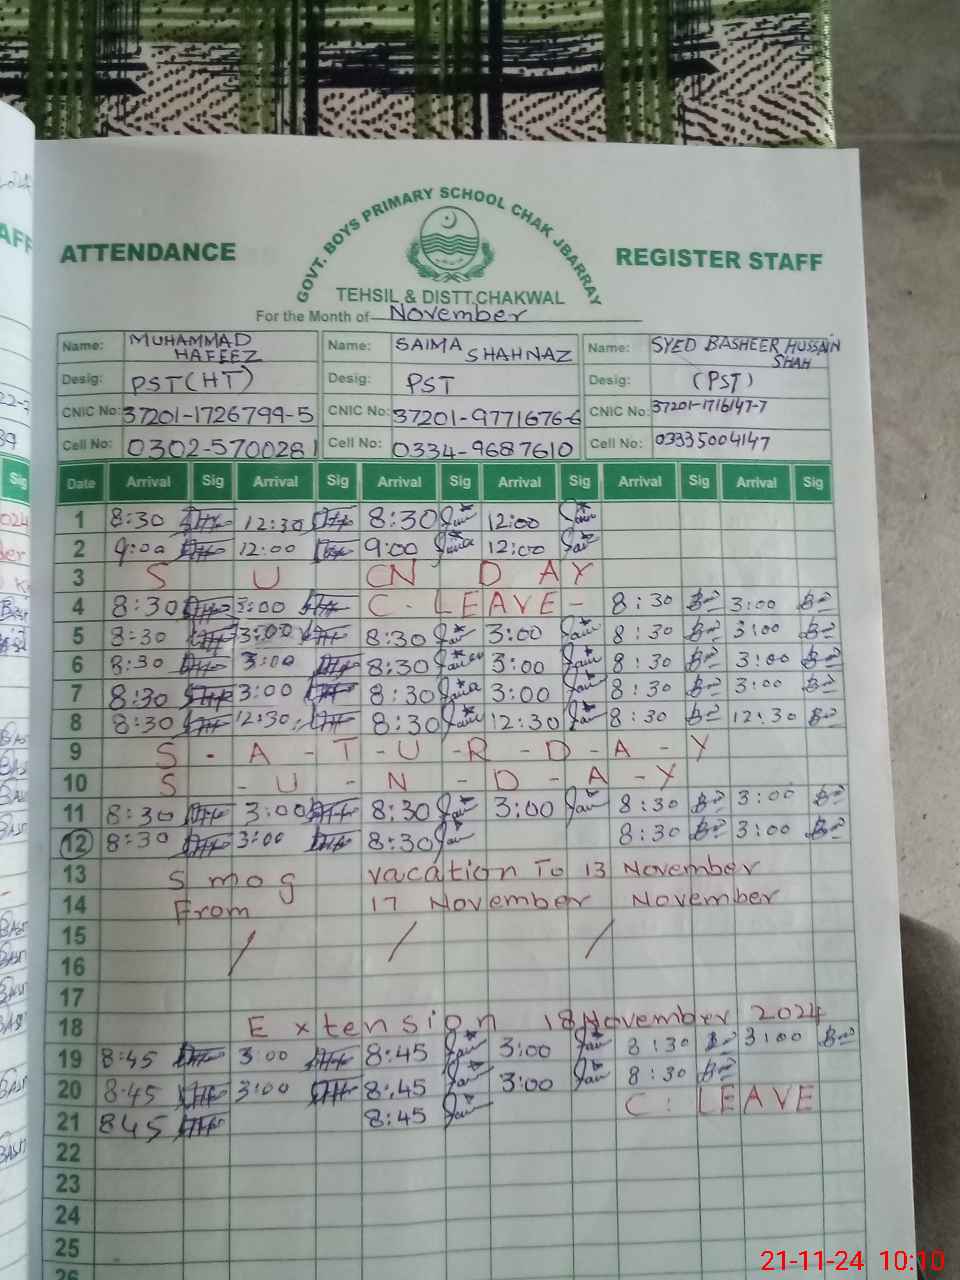 GOVT. BOYS PRIMARY SCHOOL CHAK JBARRAY
ATTENDANCE REGISTER STAFF
TEHSIL & DISTT.CHAKWAL
For the Month of November
Name: MUHAMMAD HAFEEZ Name: SAIMA SHAHNAZ Name: SYED BASHEER HUSSAIN SHAH
Desig: PST(HT) Desig: PST Desig: (PST)
CNIC No: 37201-1726799-5 CNIC No: 37201-9771676-6 CNIC No: 37201-1716147-7
Cell No: 0302-5700281 Cell No: 0334-9687610 Cell No: 03335004147
Date Arrival Sig Arrival Sig Arrival Sig Arrival Sig Arrival Sig Arrival Sig
1 8:30 12:30 8:30 12:00
2 9:00 12:00 9:00 12:00
3 S U N D A Y
4 8:30 3:00 C. LEAVE - 8:30 3:00
5 8:30 3:00 8:30 3:00 8:30 3:00
6 8:30 3:00 8:30 3:00 8:30 3:00
7 8:30 3:00 8:30 3:00 8:30 3:00
8 8:30 12:30 8:30 12:30 8:30 12:30
9 S - A - T - U - R - D - A - Y
10 S - U - N - D - A - Y
11 8:30 3:00 8:30 3:00 8:30 3:00
12 8:30 3:00 8:30 8:30 3:00
13 Smog vacation To 13 November
14 From 17 November November
15
16
17
18 Extension 18 November 2024
19 8:45 3:00 8:45 3:00 8:30 3:00
20 8:45 3:00 8:45 3:00 8:30
21 8 45 8:45 C. LEAVE
22
23
24
25
26
21-11-24 10:10